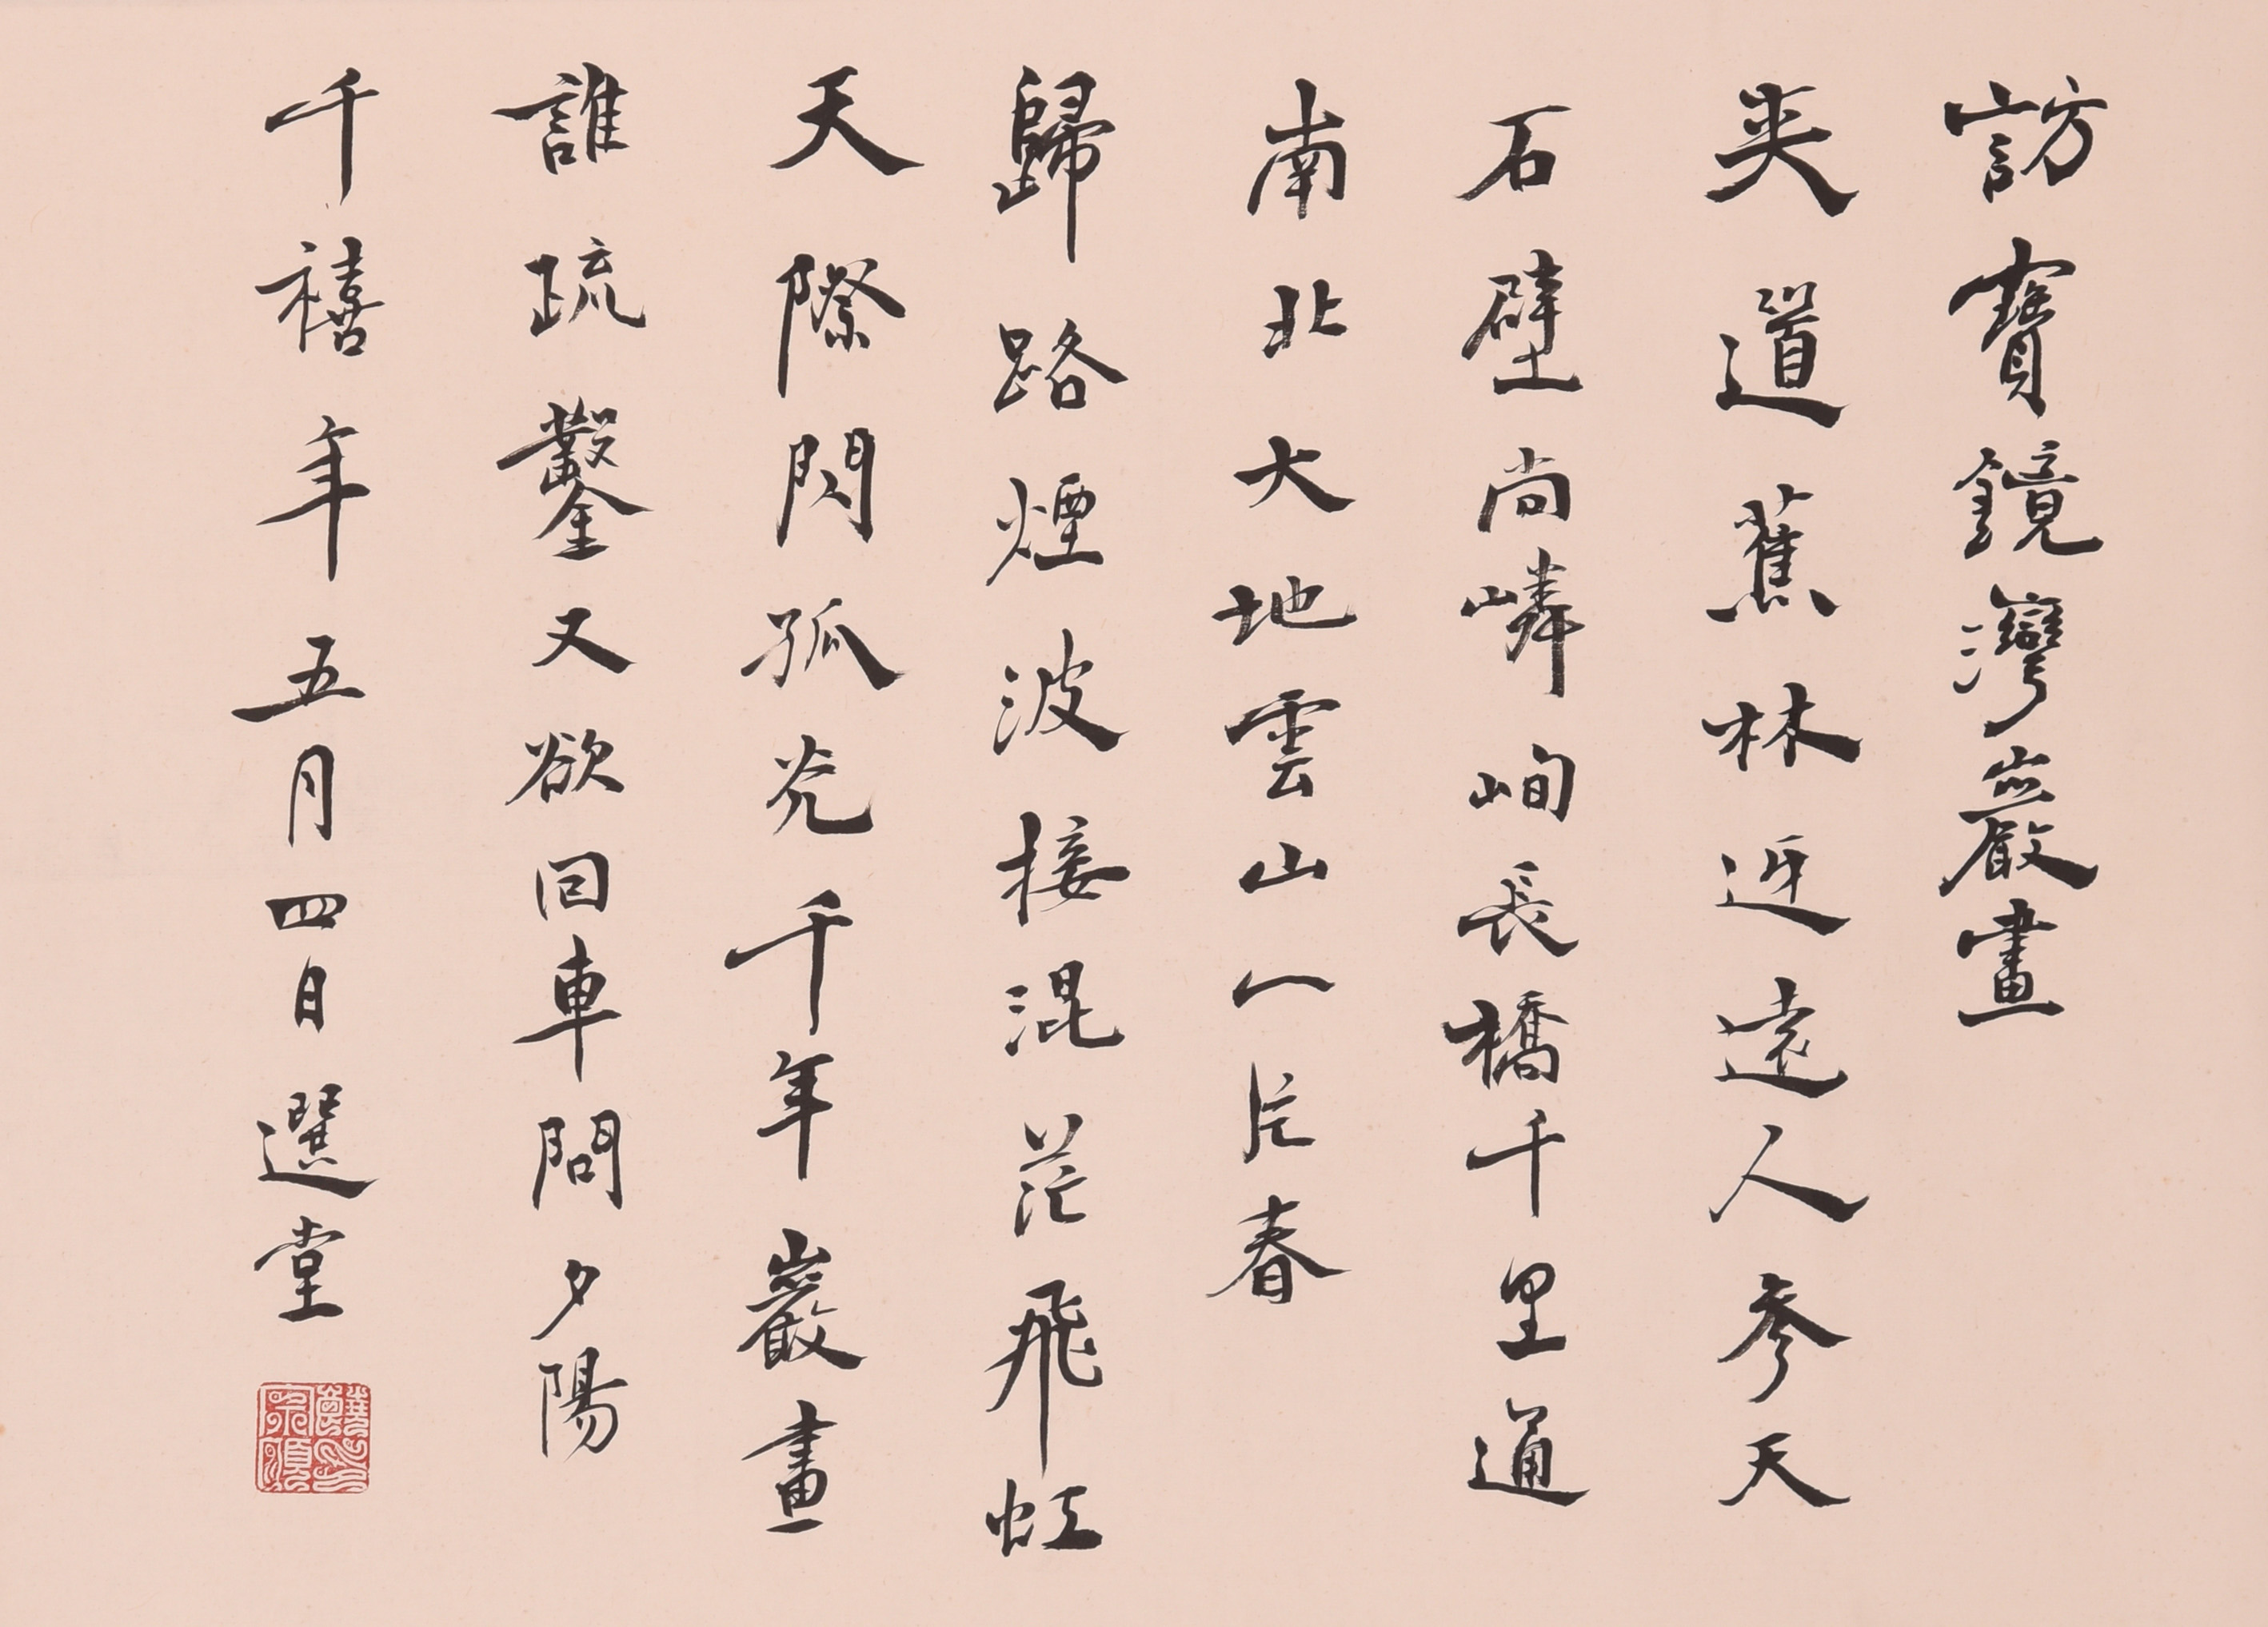 訪寶鏡灣巖畫
夾道蕉林迓遠人參天
石壁尚嶙峋長橋千里通
南北大地雲山一片春
歸路煙波接混茫飛虹
天際閃孤光千年巖畫
誰疏鑿又欲回車問夕陽
千禧年五月四日選堂
饒印宗頤